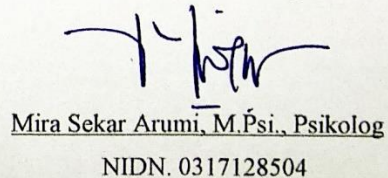 Mira Sekar Arumi, M.Psi., Psikolog
NIDN. 0317128504